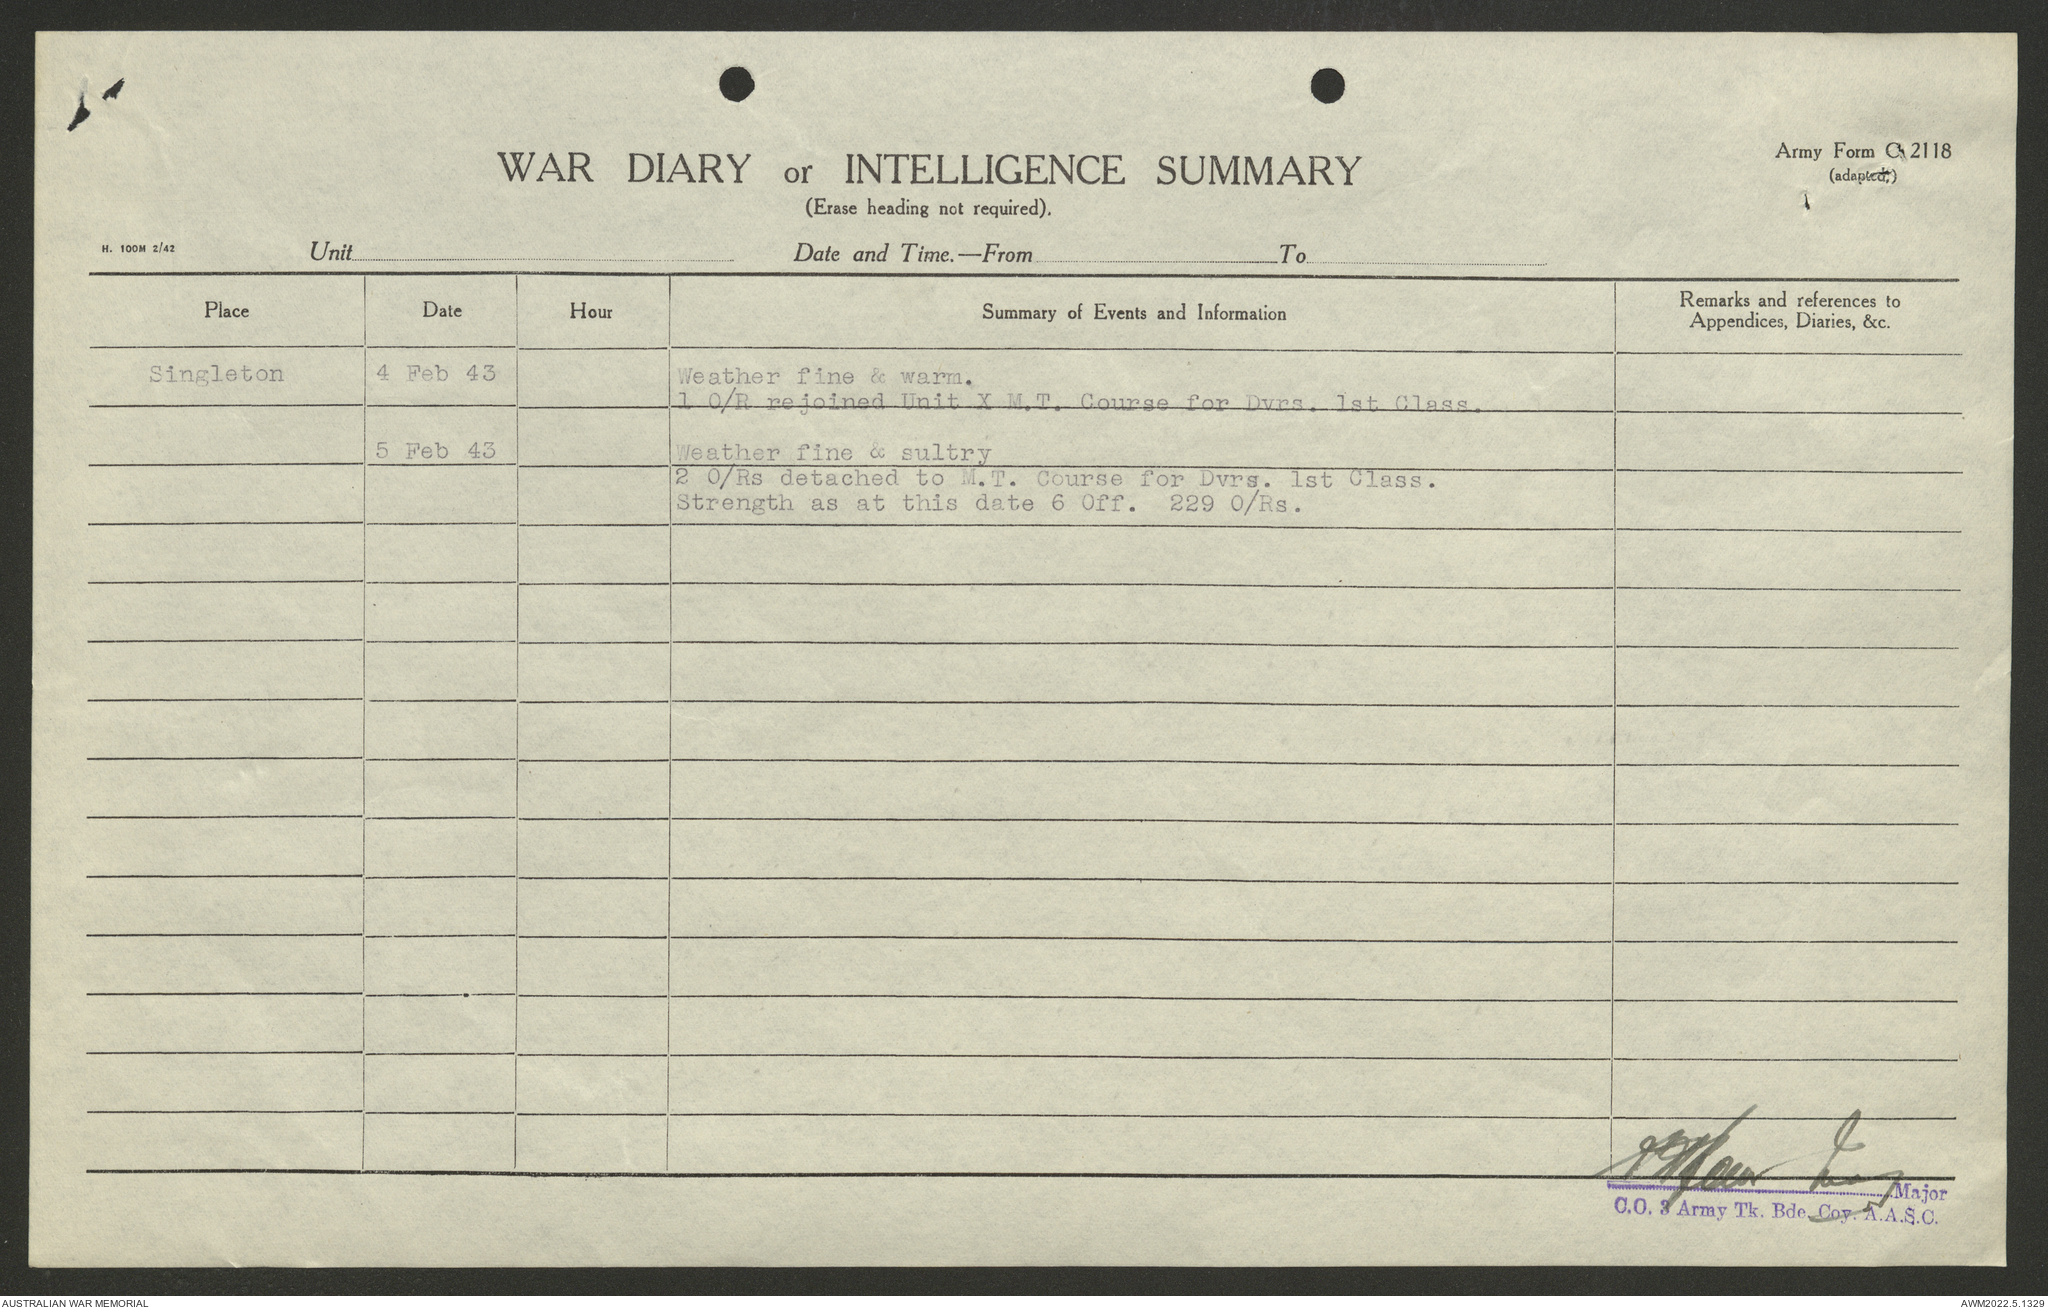 WAR DIARY or INTELLIGENCE SUMMARY
(Erase heading not required).
Army Form C 2118
(adapted)
H. 100M 2/42
Unit
Date and Time.—From
To
Place Date Hour Summary of Events and Information Remarks and references to Appendices, Diaries, &c.
Singleton 4 Feb 43 Weather fine & warm.
1 O/R rejoined Unit X M.T. Course for Dvrs. 1st Class.
5 Feb 43 Weather fine & sultry
2 O/Rs detached to M.T. Course for Dvrs. 1st Class.
Strength as at this date 6 Off. 229 O/Rs.
Major
C.O. 3 Army Tk. Bde. Coy. A.A.S.C.
AUSTRALIAN WAR MEMORIAL
AWM2022.5.1329